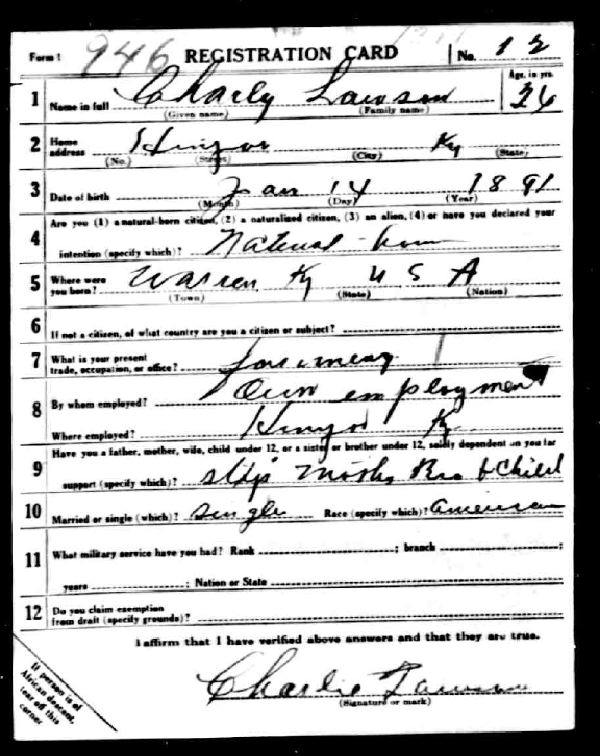 Form 1 946 REGISTRATION CARD No. 12
1 Name in full Charly Lawson Age, in yrs. 26
(Given name) (Family name)
2 Home address Ky
(No.) (Street) (City) (State)
3 Date of birth Jan 14 1891
(Month) (Day) (Year)
4 Are you (1) a natural-born citizen, (2) a naturalized citizen, (3) an alien, (4) or have you declared your
intention (specify which)? Natural-born
5 Where were you born? Warren Ky U S A
(Town) (State) (Nation)
6 If not a citizen, of what country are you a citizen or subject?
7 What is your present trade, occupation, or office? farmer
8 By whom employed? Own employment
Where employed? Ky
9 Have you a father, mother, wife, child under 12, or a sister or brother under 12, solely dependent on you for
support (specify which)? Bro & Child
10 Married or single (which)? Single Race (specify which)? American
11 What military service have you had? Rank ; branch ;
years ; Nation or State
12 Do you claim exemption
from draft (specify grounds)?
I affirm that I have verified above answers and that they are true.
Charlie Lawson
(Signature or mark)
If person is of
African descent,
tear off this
corner